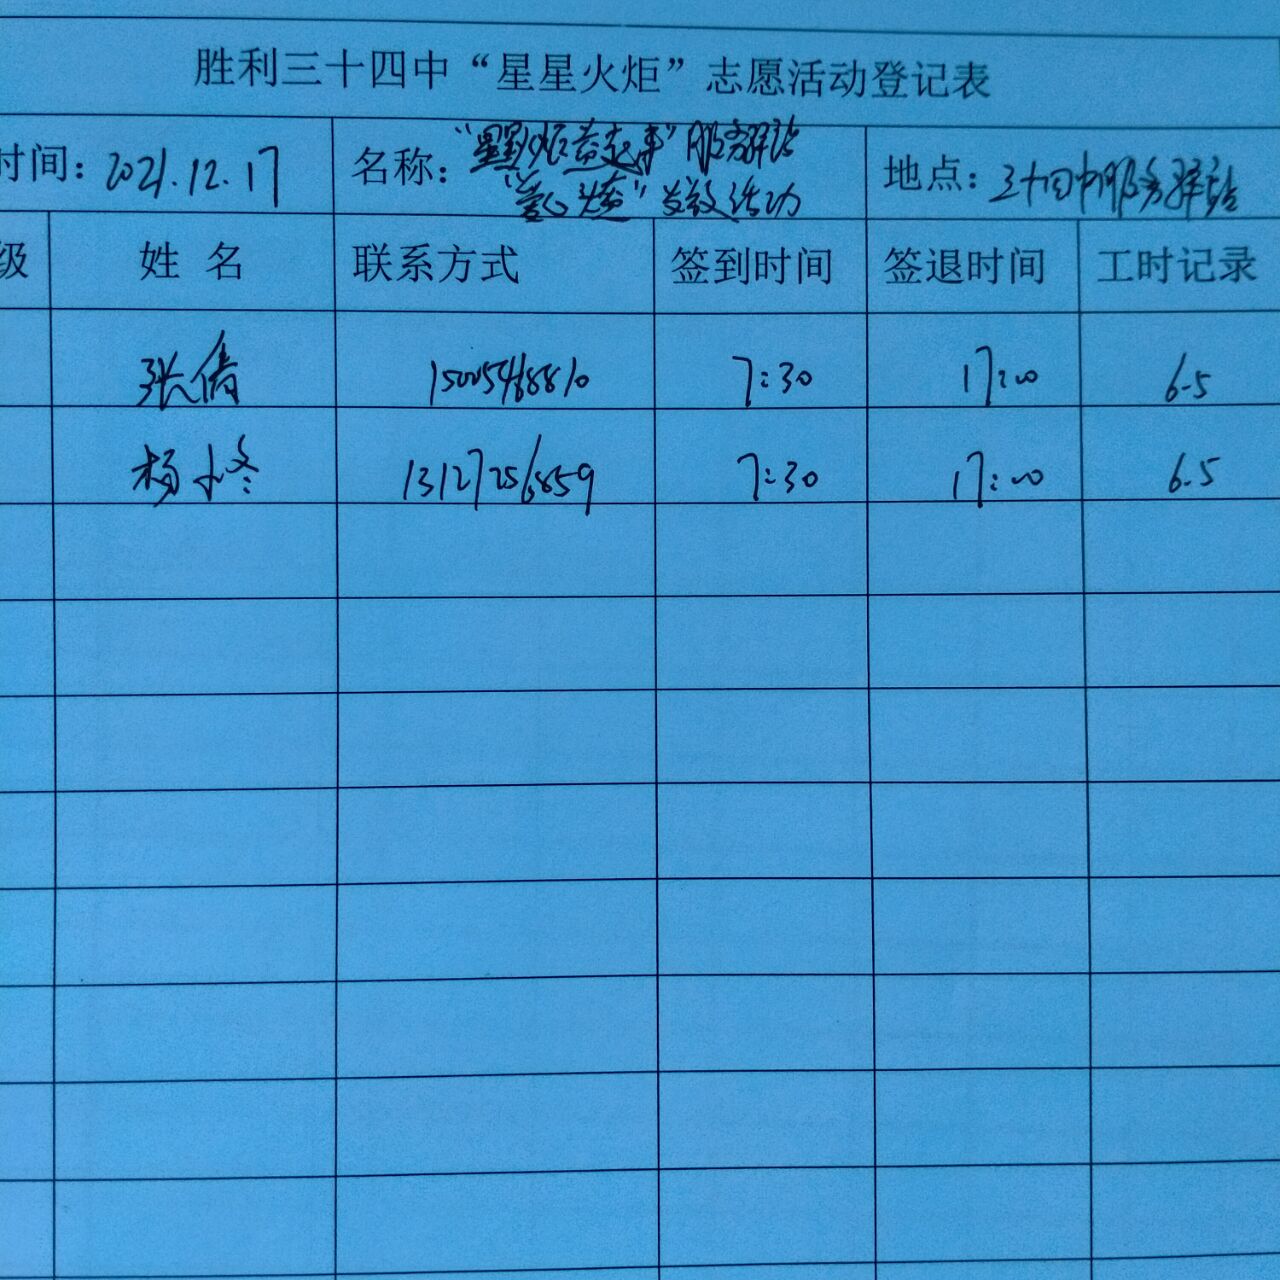 胜利三十四中“星星火炬”志愿活动登记表
时间：2021.12.17 名称：“星星火炬益起来”服务驿站 地点：三十四中服务驿站
“爱心 ”发放活动
级 姓 名 联系方式 签到时间 签退时间 工时记录
张倩 15005468810 7:30 17:00 6.5
杨 13127256859 7:30 17:00 6.5